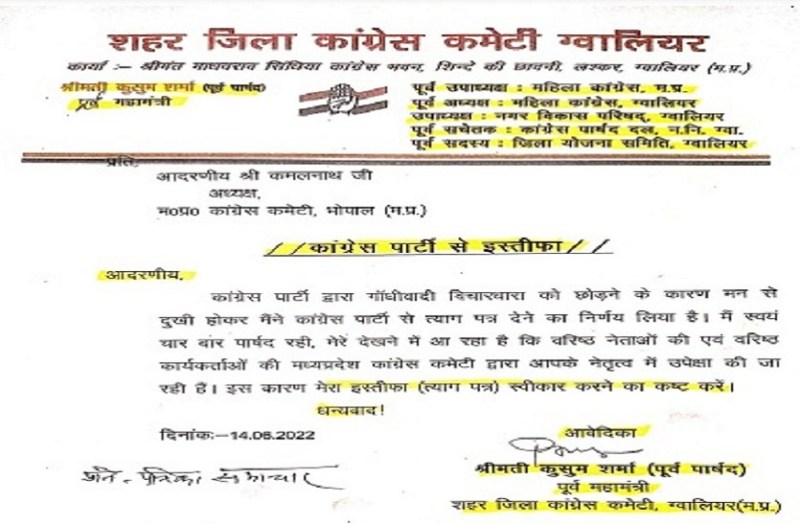 शहर जिला कांग्रेस कमेटी ग्वालियर
कार्या :- श्रीमंत माधवराव सिंधिया कांग्रेस भवन, शिन्दे की छावनी, लश्कर, ग्वालियर (म.प्र.)
श्रीमती कुसुम शर्मा (पूर्व पार्षद)
पूर्व महामंत्री
पूर्व उपाध्यक्ष : महिला कांग्रेस, म.प्र.
पूर्व अध्यक्ष : महिला कांग्रेस, ग्वालियर
उपाध्यक्ष : नगर विकास परिषद्, ग्वालियर
पूर्व सचेतक : कांग्रेस पार्षद दल, न.नि. ग्वा.
पूर्व सदस्य : जिला योजना समिति, ग्वालियर
प्रति,
आदरणीय श्री कमलनाथ जी
अध्यक्ष,
म०प्र० कांग्रेस कमेटी, भोपाल (म.प्र.)
//कांग्रेस पार्टी से इस्तीफा//
आदरणीय,
कांग्रेस पार्टी द्वारा गाँधीवादी विचारधारा को छोड़ने के कारण मन से
दुखी होकर मैंने कांग्रेस पार्टी से त्याग पत्र देने का निर्णय लिया है। मैं स्वयं
चार बार पार्षद रही, मेरे देखने में आ रहा है कि वरिष्ठ नेताओं की एवं वरिष्ठ
कार्यकर्ताओं की मध्यप्रदेश कांग्रेस कमेटी द्वारा आपके नेतृत्व में उपेक्षा की जा
रही है। इस कारण मेरा इस्तीफा (त्याग पत्र) स्वीकार करने का कष्ट करें।
धन्यवाद!
दिनांकः-14.06.2022
आवेदिका
श्रीमती कुसुम शर्मा (पूर्व पार्षद)
पूर्व महामंत्री
शहर जिला कांग्रेस कमेटी, ग्वालियर(म.प्र.)
पत्रिका समाचार